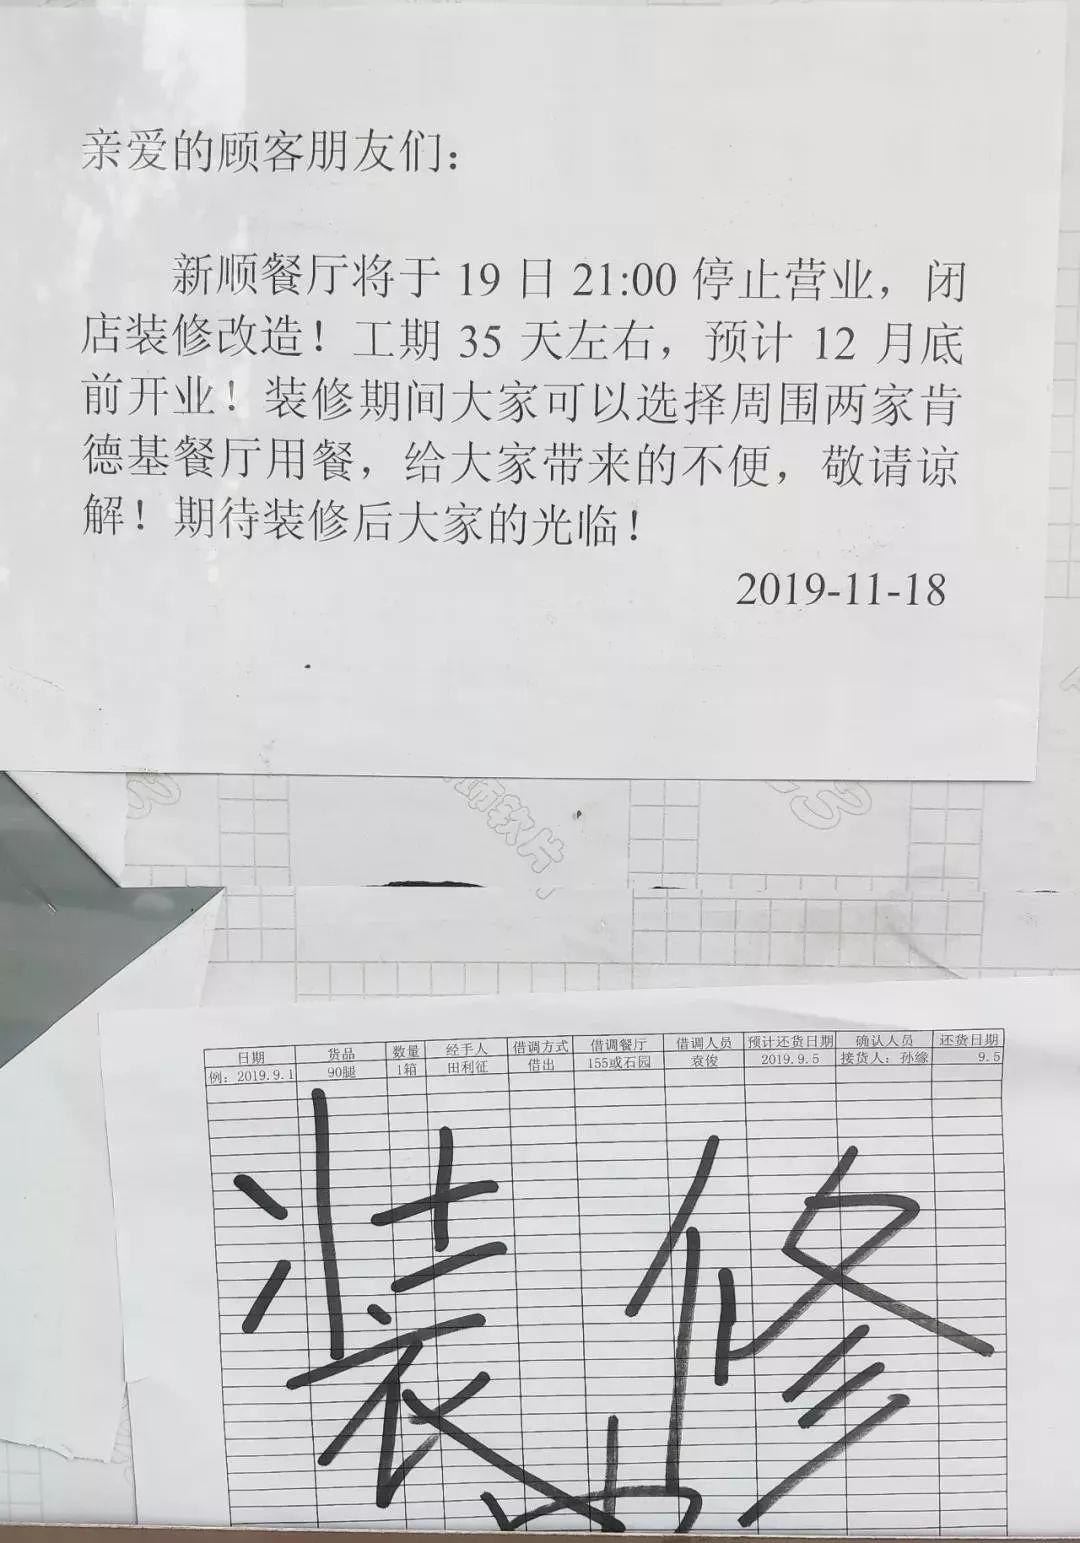 亲爱的顾客朋友们：
新顺餐厅将于 19 日 21:00 停止营业，闭
店装修改造！工期 35 天左右，预计 12 月底
前开业！装修期间大家可以选择周围两家肯
德基餐厅用餐，给大家带来的不便，敬请谅
解！期待装修后大家的光临！
2019-11-18
饰软片
日期 货品 数量 经手人 借调方式 借调餐厅 借调人员 预计还货日期 确认人员 还货日期
例：2019.9.1 90腿 1箱 田利征 借出 155或石园 袁俊 2019.9.5 接货人：孙缘 9.5
装修